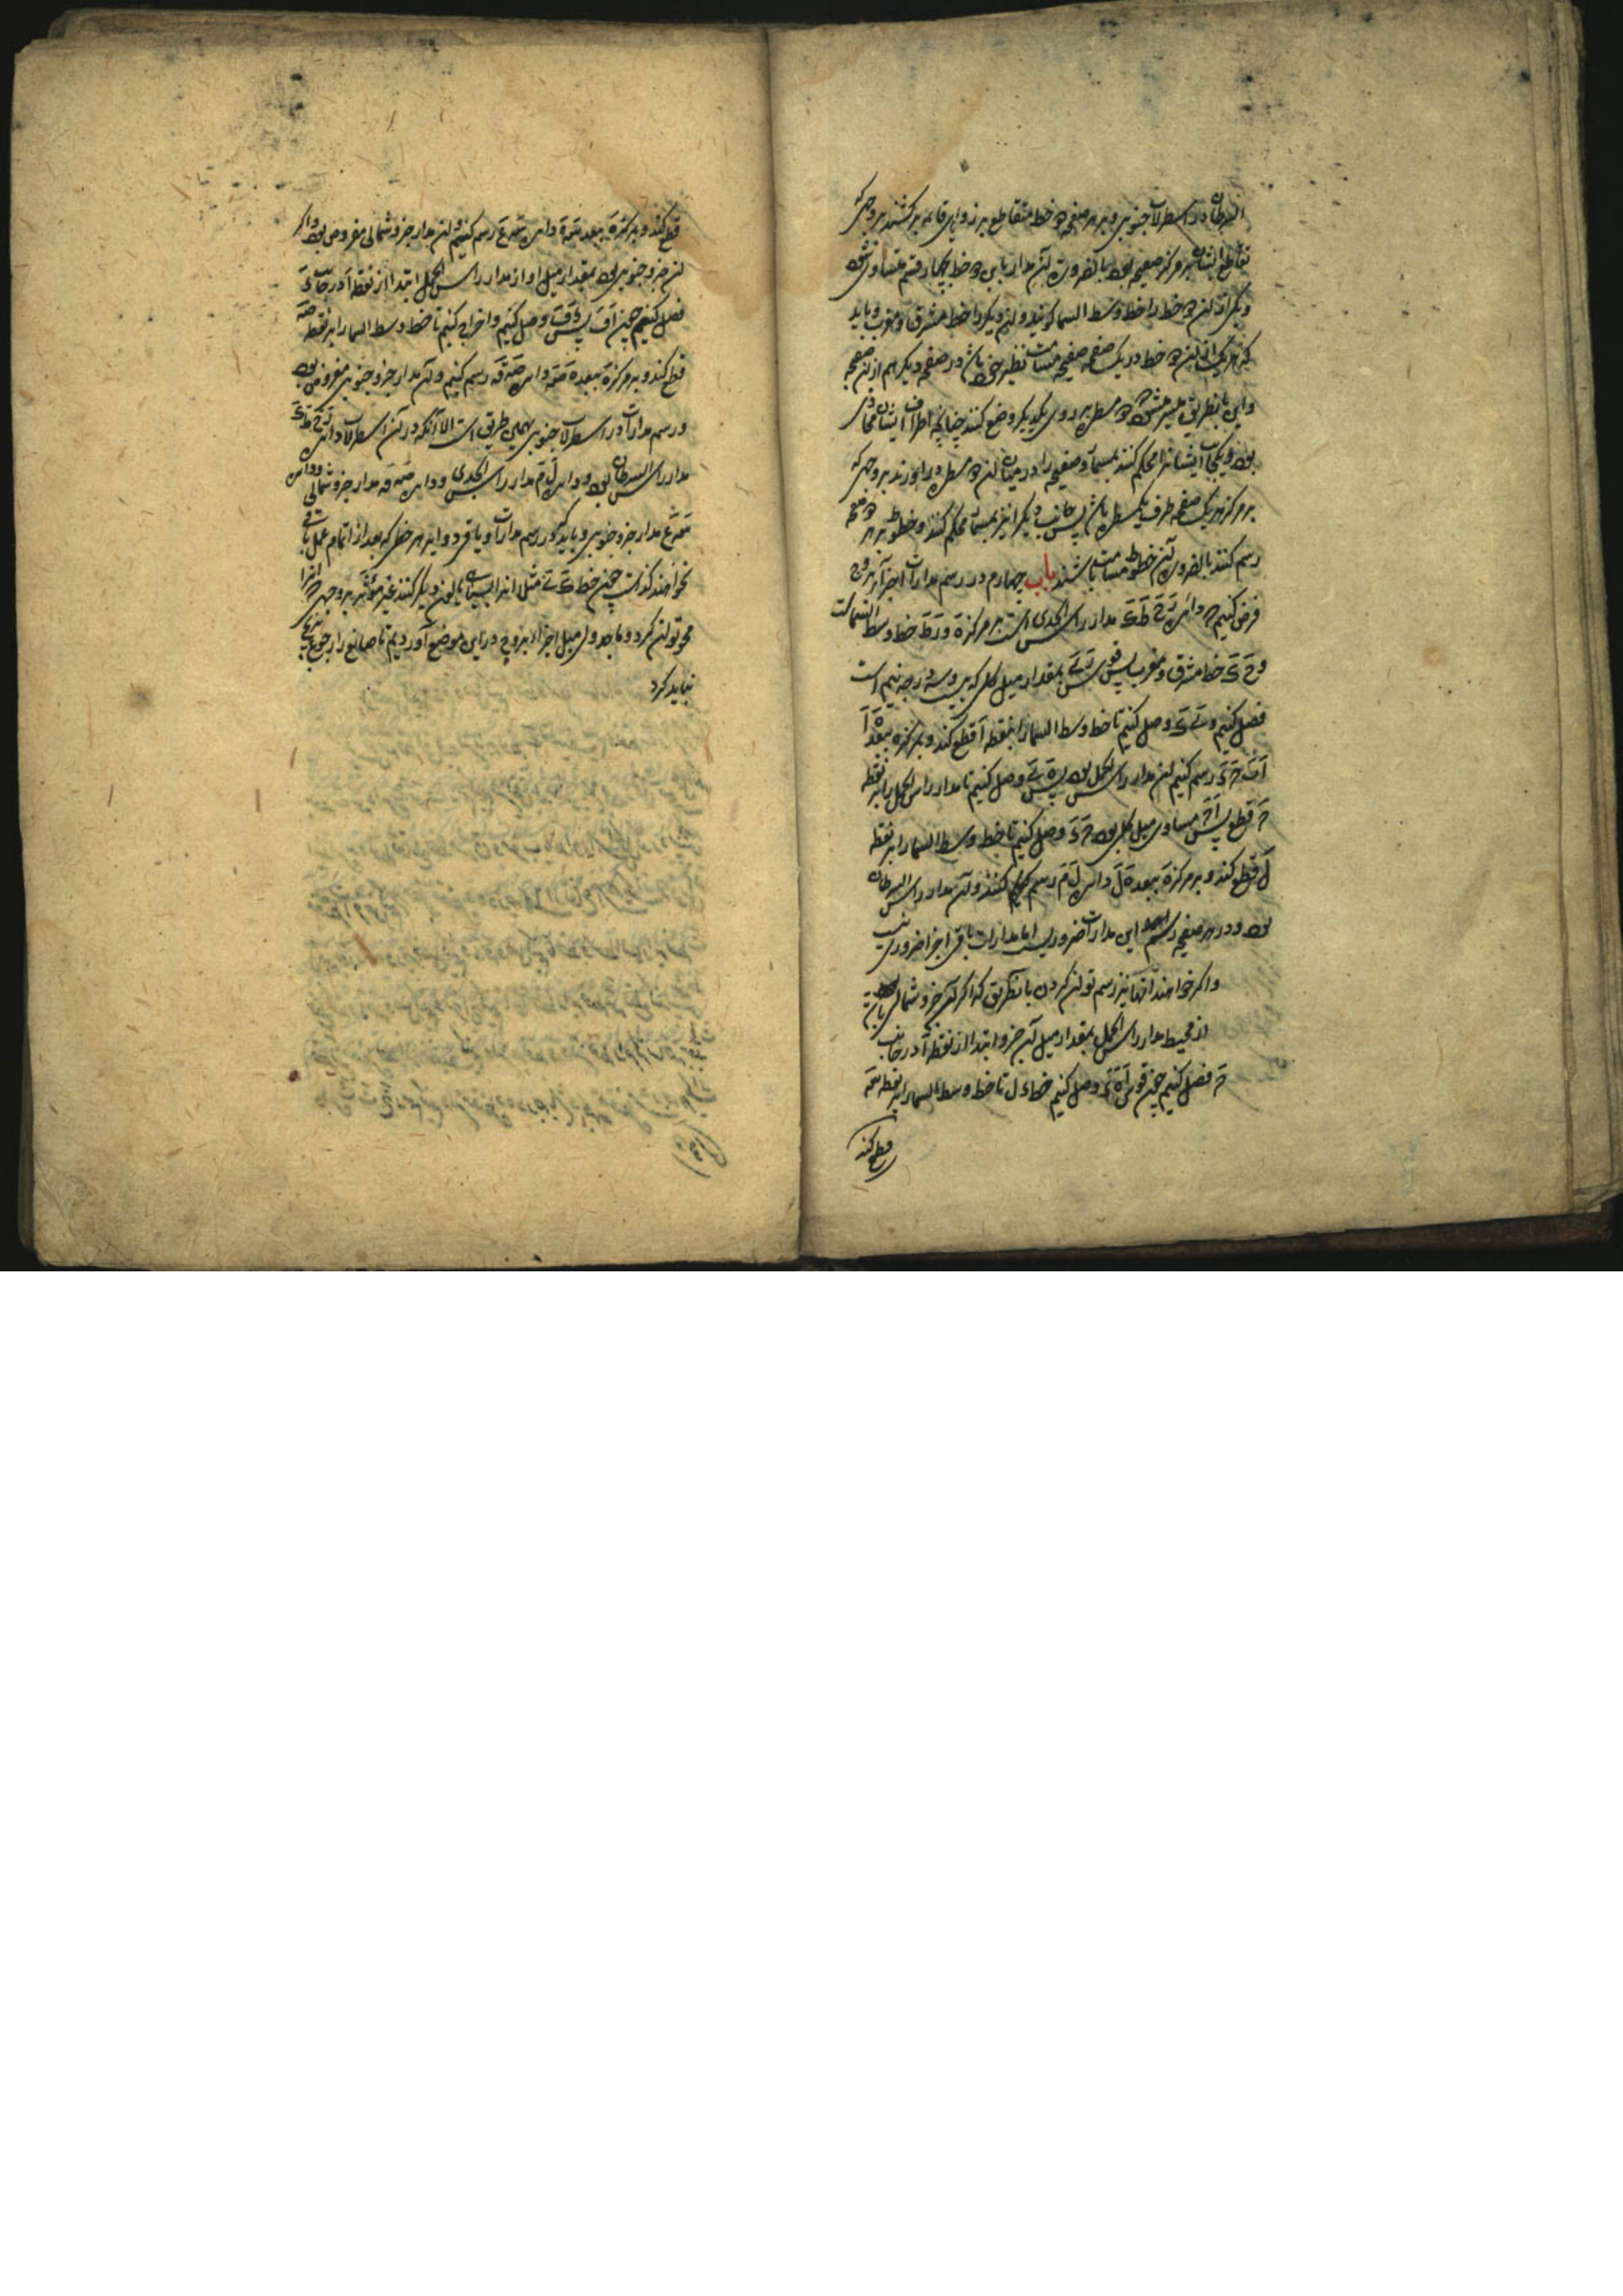 السرطان در اسطرلاب جنوبی و بر هر صفحه دو خط متقاطع بر زوایای قایمه بر کشند بر وجهی که
تقاطع ایشان بر مرکز صفیحه بود بالضرورت آن مدار باین دو خط بچهار قسم متساوی شود
و یکی از آن دو خط را خط وسط السما گویند و آن دیگر را خط مشرق و مغرب و باید
که هر یک از آن دو خط در یک صفحه صفیحه مسامت نظیر خود باشد در صفحه دیگر هم از آن صفیحه
و این باینطریق میسر شود که دو مسطره بر روی یکدیگر وضع کنند چنانچه اطراف ایشان محاذی
بود و یکجانب ایشانرا محکم کنند بمسمار و صفیحه را در میان آن دو مسطره در آورند بر وجهی که
بر مرکز هر یک صفحه طرف یک مسطره باشد پس جانب دیگر را نیز بمسمار محکم کنند و خطوط بر هر دو صفحه
رسم کنند بالضروره آن خطوط مسامت باشند باب چهارم در رسم مدارات اجزآء بروج
فرض کنیم که دایره رح ط ی مدار راس الجدی است بر مرکز ه و ر ط خط وسط السماست
و ح ی خط مشرق و مغرب پس قوس بمقدار میل کلی که بیست و سه درجه و نیم است
فصل کنیم و وصل کنیم تا خط وسط السما را بنقطه آ قطع کند و بر مرکز ه ببعد ه آ
رسم کنیم آن مدار راس الحمل بود پس وصل کنیم تا مدار راس الحمل را بر نقطه
قطع پس مساوی میل کلی بود وصل کنیم تا خط وسط السما را بر نقطه
ل قطع کند و بر مرکز ه ببعد ه ل دایره ل م رسم کنند و آن مدار راس السرطان
بود و در هر صفیحه رسم این مدارات ضروریست اما مدارات باقی اجزا ضروری نیست
و اگر خواهند آنها نیز رسم توان کردن بآنطریق که اگر آن جزو شمالی باشد
از محیط مدار راس الحمل بمقدار میل آن جزو ابتدا از نقطه آ در جانب
فصل کنیم چون قوس وصل کنیم خط تا خط وسط السما را بر نقطه
قطع کند
قطع کند و بر مرکز ه ببعد دایره رسم کنیم و آن مدار جزو شمالی مفروض بود و اگر
آن جزو جنوبی بود بمقدار میل او از مدار راس الحمل ابتدا از نقطه آ در جانب
فصل کنیم چون پس وصل کنیم و اخراج کنیم تا خط وسط السما را بر نقطه
قطع کند و بر مرکز ه ببعد دایره رسم کنیم و آن مدار جزو جنوبی مفروض بود
و رسم مدارات در اسطرلاب جنوبی بهمین طریق است الا آنکه در آن اسطرلاب دایره
مدار راس السرطان بود و دایره ل م مدار راس الجدی و دایره مدار جزو شمالی و دایره
مدار جزو جنوبی و باید که در رسم مدارات و باقی دوایر هر خطی که بعد از اتمام عمل باقی
نخواهند گذاشت چون خط مثلا انرا بسیاهی یا لون دیگر کنند غیر مؤثر بر وجهی که انرا
محو توان کرد و ما جدول میل اجزاء بروج در این موضع آوردیم تا صانع را رجوع
نباید کرد